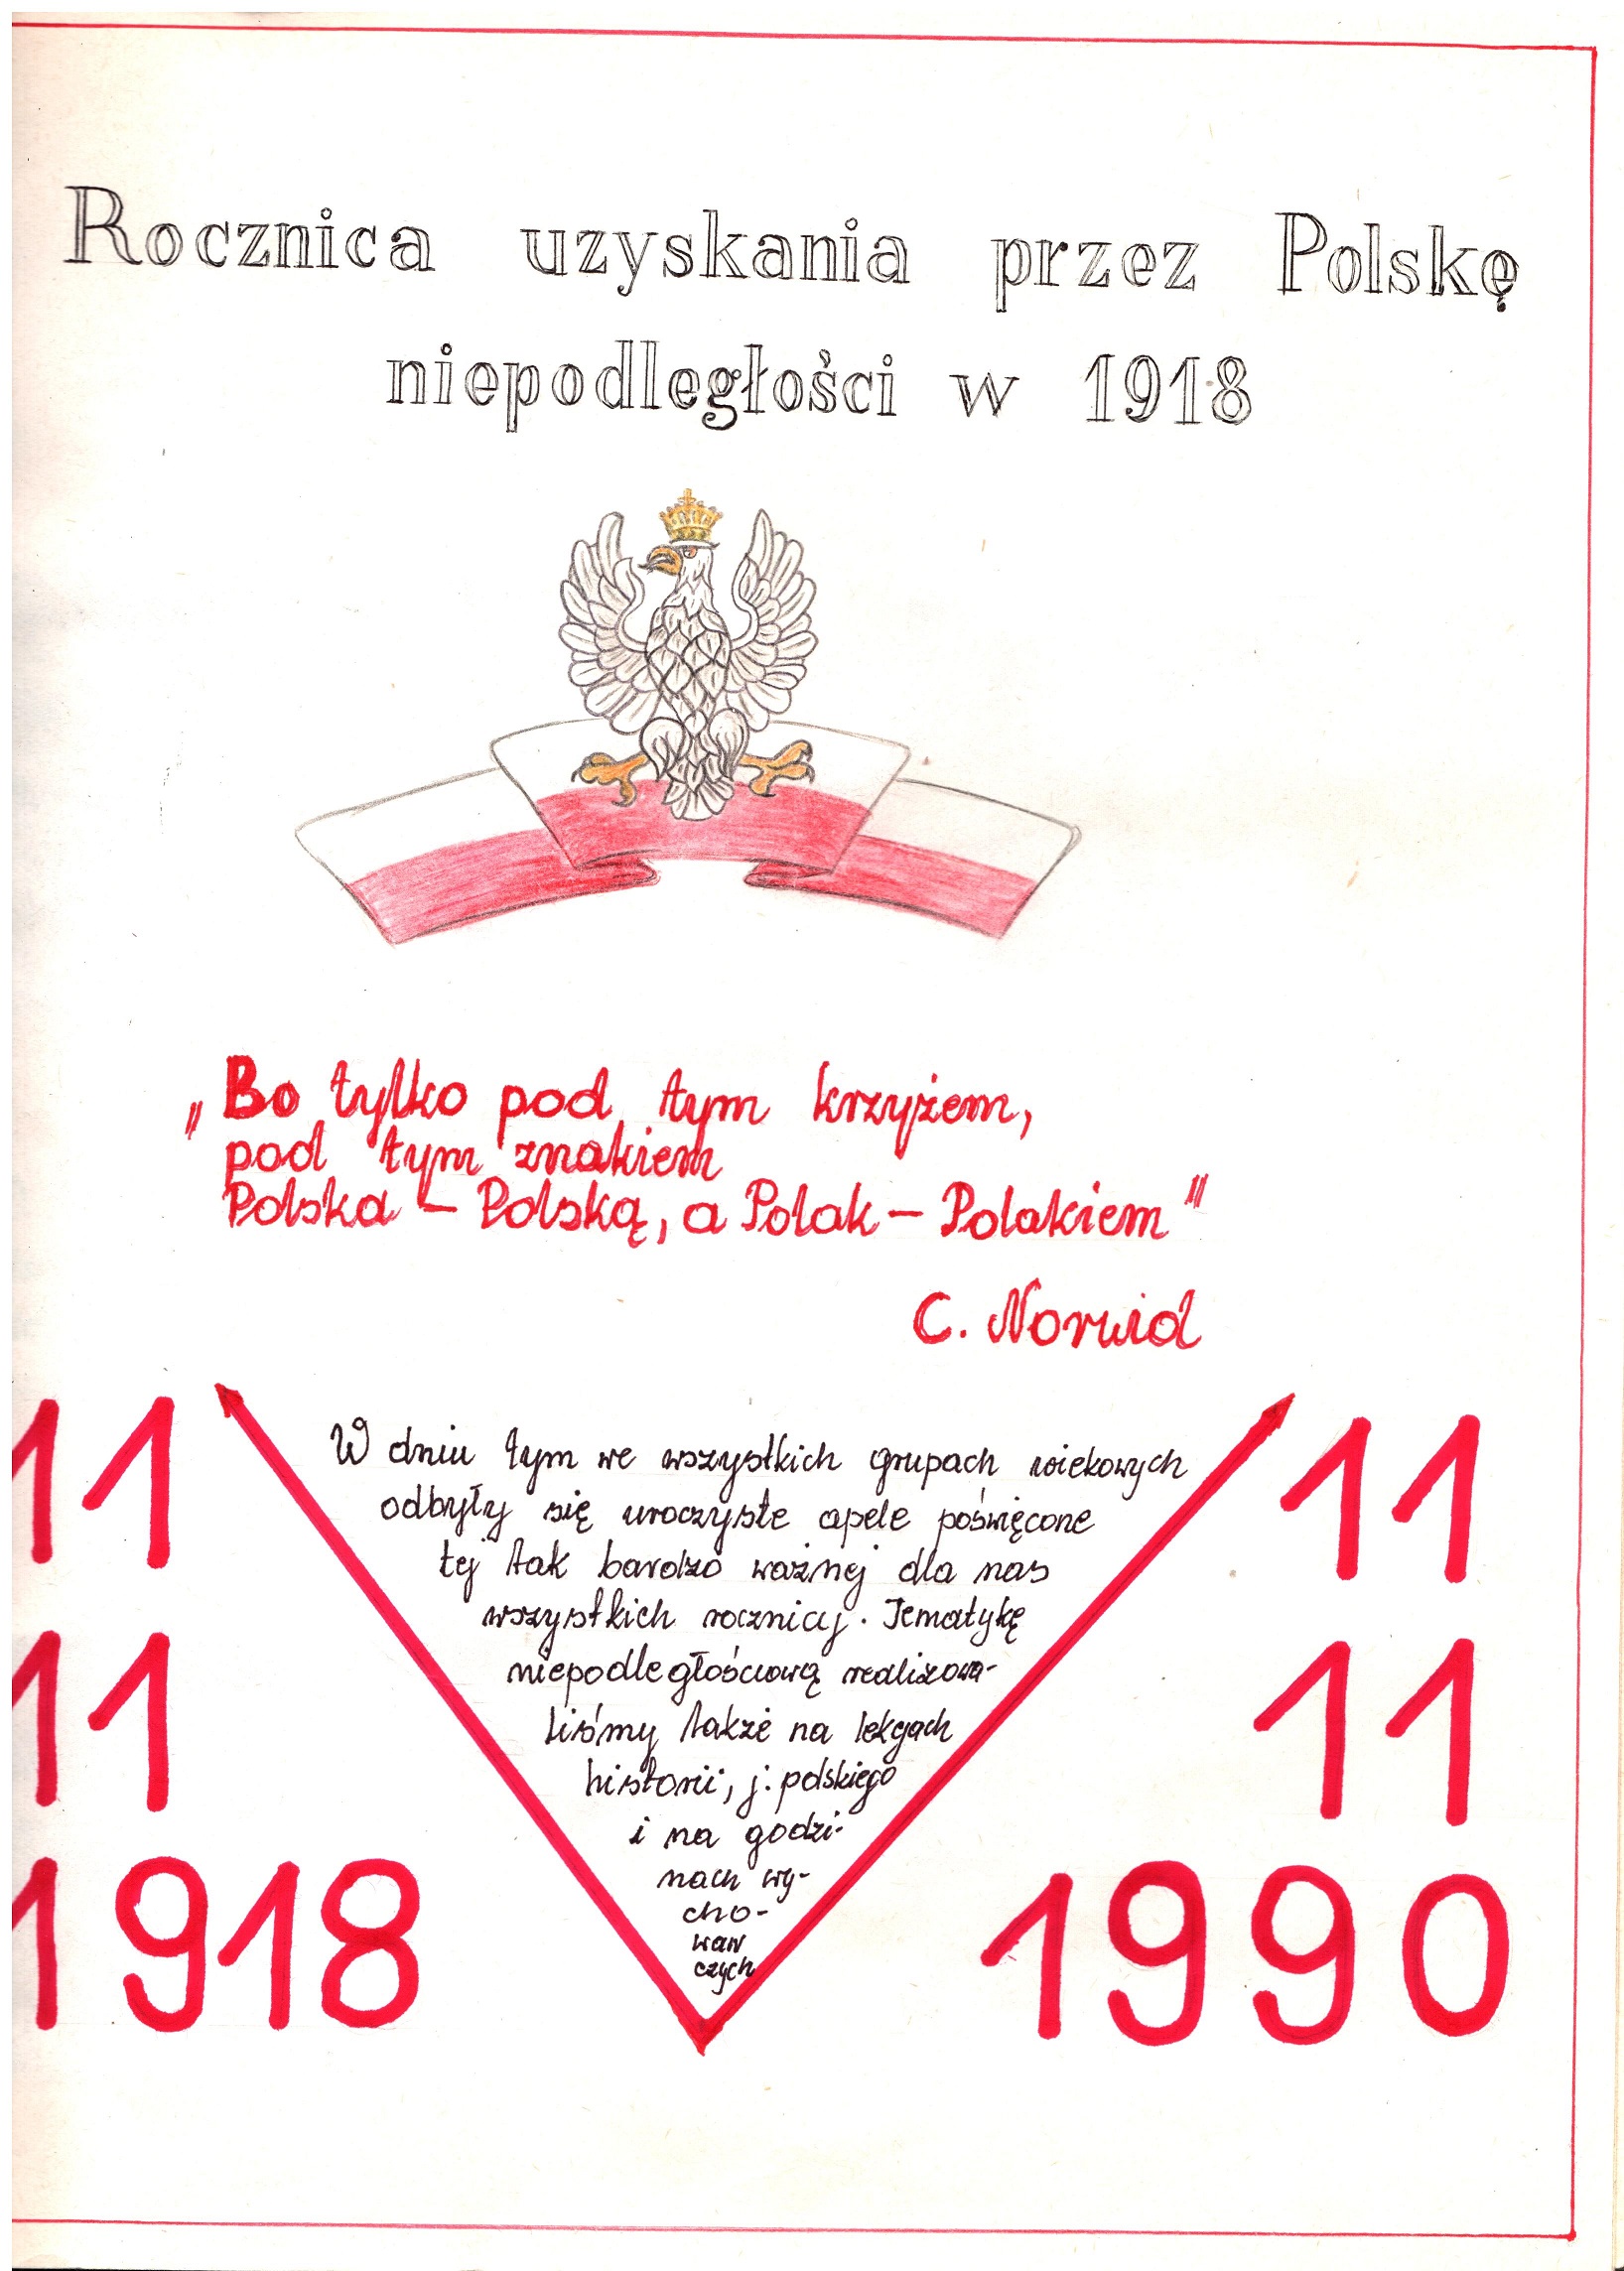 Rocznica uzyskania przez Polskę
niepodległości w 1918
„Bo tylko pod tym krzyżem,
pod tym znakiem
Polska – Polską, a Polak – Polakiem"
C. Norwid
11
11
1918
W dniu tym we wszystkich grupach wiekowych
odbyły się uroczyste apele poświęcone
tej tak bardzo ważnej dla nas
wszystkich rocznicy. Tematykę
niepodległościową realizowa-
liśmy także na lekcjach
historii, j. polskiego
i na godzi-
nach wy-
cho-
waw
czych
11
11
1990